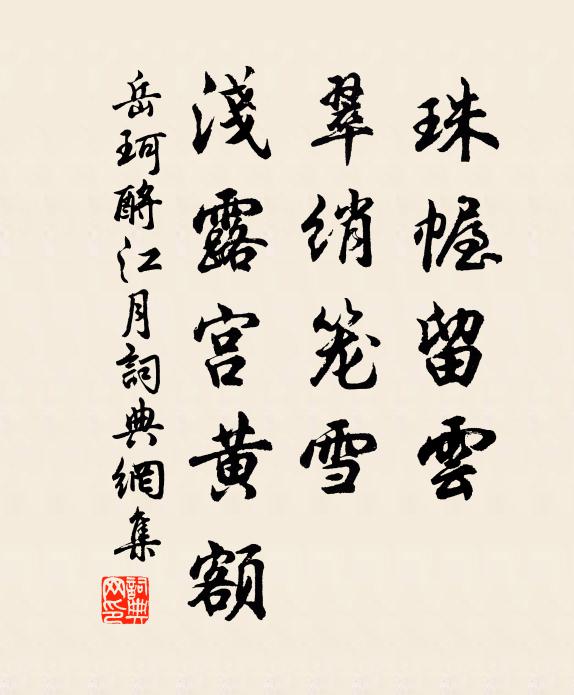 珠幄留雲
翠绡笼雪
淺露宫黄額
岳珂酹江月詞典網集
詞典网印